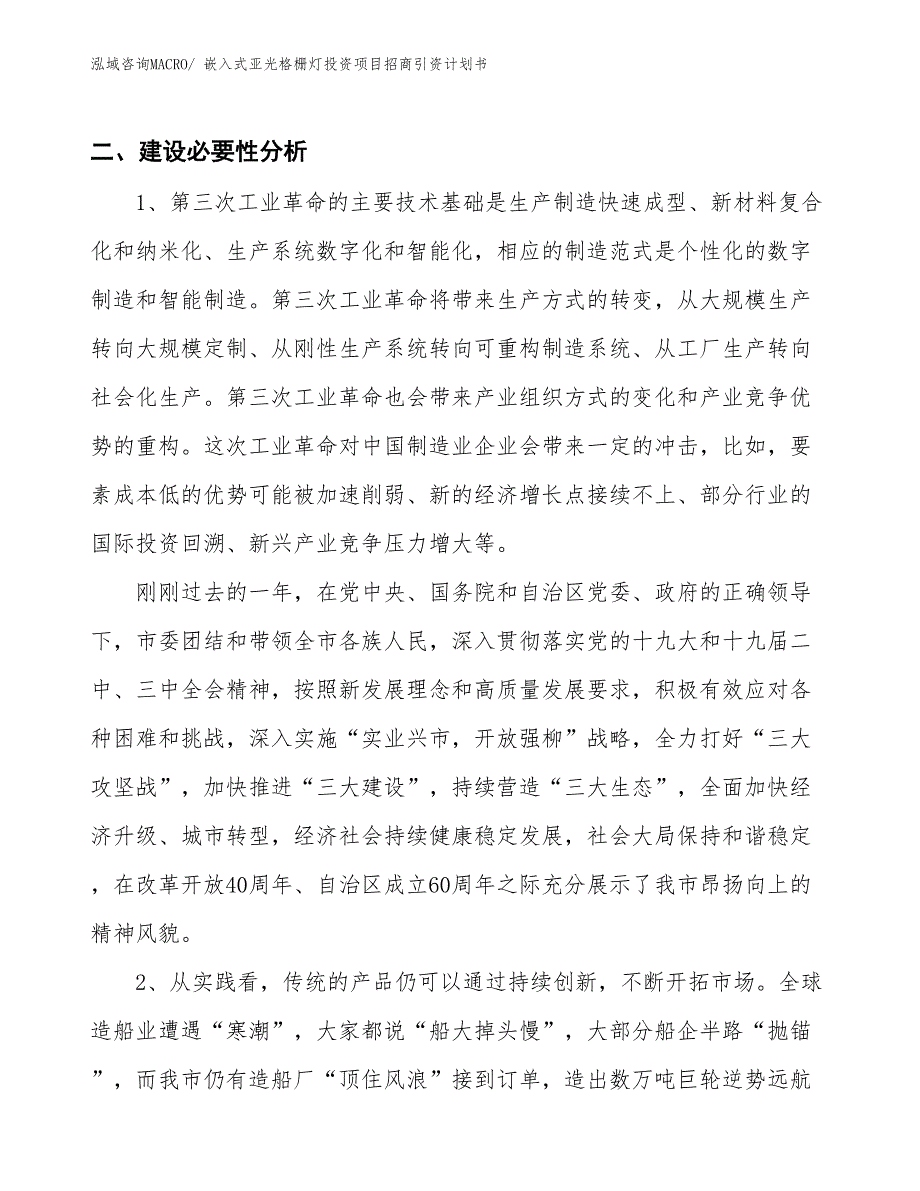 泓域咨询MACRO/ 嵌入式亚光格栅灯投资项目招商引资计划书
二、建设必要性分析
1、第三次工业革命的主要技术基础是生产制造快速成型、新材料复合
化和纳米化、生产系统数字化和智能化，相应的制造范式是个性化的数字
制造和智能制造。第三次工业革命将带来生产方式的转变，从大规模生产
转向大规模定制、从刚性生产系统转向可重构制造系统、从工厂生产转向
社会化生产。第三次工业革命也会带来产业组织方式的变化和产业竞争优
势的重构。这次工业革命对中国制造业企业会带来一定的冲击，比如，要
素成本低的优势可能被加速削弱、新的经济增长点接续不上、部分行业的
国际投资回溯、新兴产业竞争压力增大等。
刚刚过去的一年，在党中央、国务院和自治区党委、政府的正确领导
下，市委团结和带领全市各族人民，深入贯彻落实党的十九大和十九届二
中、三中全会精神，按照新发展理念和高质量发展要求，积极有效应对各
种困难和挑战，深入实施“实业兴市，开放强柳”战略，全力打好“三大
攻坚战”，加快推进“三大建设”，持续营造“三大生态”，全面加快经
济升级、城市转型，经济社会持续健康稳定发展，社会大局保持和谐稳定
，在改革开放40周年、自治区成立60周年之际充分展示了我市昂扬向上的
精神风貌。
2、从实践看，传统的产品仍可以通过持续创新，不断开拓市场。全球
造船业遭遇“寒潮”，大家都说“船大掉头慢”，大部分船企半路“抛锚
”，而我市仍有造船厂“顶住风浪”接到订单，造出数万吨巨轮逆势远航